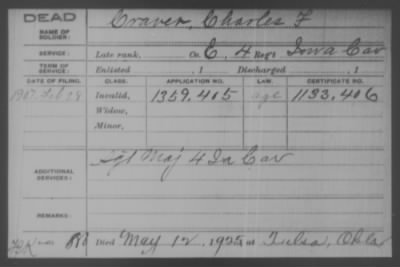 DEAD
NAME OF SOLDIER: Craver, Charles F
SERVICE: Late rank, Co. E, 4 Reg't Iowa Cav
TERM OF SERVICE: Enlisted , 1 Discharged , 1
DATE OF FILING. CLASS. APPLICATION NO. LAW. CERTIFICATE NO.
1907 Feb 28 Invalid, 1359.405 age 1133.406
Widow,
Minor,
ADDITIONAL SERVICES: Sgt Maj 4 Ia Cav
REMARKS:
Died May 12, 1925 at Tulsa, Okla